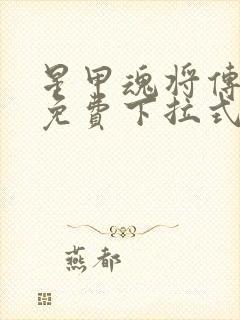 星甲魂将傳
免費下拉式
燕都